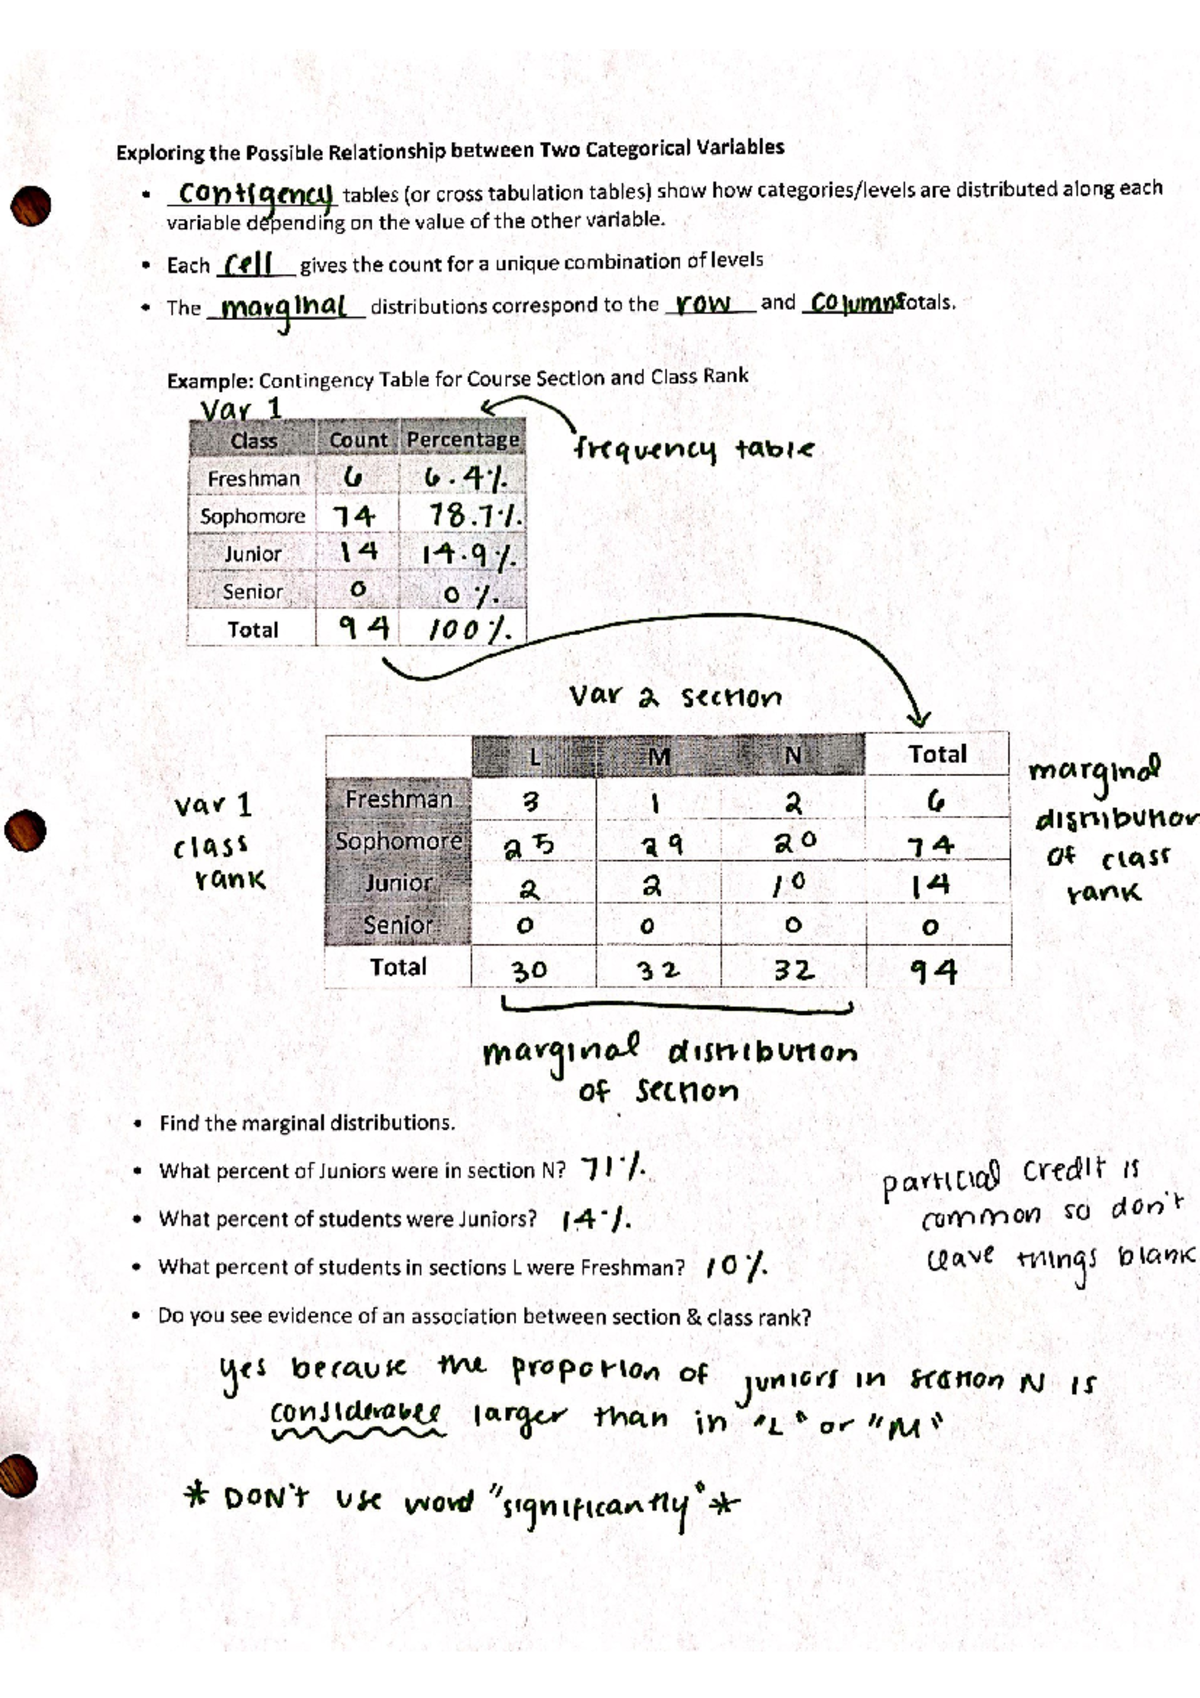 Exploring the Possible Relationship between Two Categorical Variables
• contigency tables (or cross tabulation tables) show how categories/levels are distributed along each
variable depending on the value of the other variable.
• Each cell gives the count for a unique combination of levels
• The marginal distributions correspond to the row and column totals.
Example: Contingency Table for Course Section and Class Rank
Var 1
Class Count Percentage
frequency table
Freshman 6 6.4%
Sophomore 74 78.7%
Junior 14 14.9%
Senior 0 0%
Total 94 100%
Var 2 section
L M N Total
Freshman 3 1 2 6
Sophomore 25 29 20 74
Junior 2 2 10 14
Senior 0 0 0 0
Total 30 32 32 94
var 1
class
rank
marginal
distribution
of class
rank
marginal distribution
of section
• Find the marginal distributions.
• What percent of Juniors were in section N? 71%
• What percent of students were Juniors? 14%
• What percent of students in sections L were Freshman? 10%
particial credit is
common so don't
leave things blank
• Do you see evidence of an association between section & class rank?
yes because the proportion of juniors in section N is
considerablee larger than in "L" or "M"
* DON'T use word "significantly" *